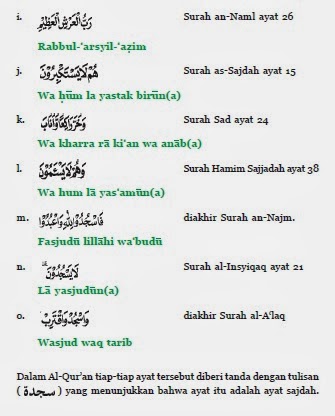 i. رَبُّ الْعَرْشِ الْعَظِيْمِ Surah an-Naml ayat 26
Rabbul-‘arsyil-‘aẓim
j. هُمْ لَا يَسْتَكْبِرُوْنَ Surah as-Sajdah ayat 15
Wa ḥūm la yastak birūn(a)
k. وَخَرَّ رَاكِعًا وَّأَنَابَ Surah Sad ayat 24
Wa kharra rā ki‘an wa anāb(a)
l. وَهُمْ لَا يَسْئَمُوْنَ Surah Hamim Sajjadah ayat 38
Wa hum lā yas‘amūn(a)
m. فَاسْجُدُوْا لِلّٰهِ وَاعْبُدُوْا diakhir Surah an-Najm.
Fasjudū lillāhi wa‘budū
n. لَا يَسْجُدُوْنَ Surah al-Insyiqaq ayat 21
Lā yasjudūn(a)
o. وَاسْجُدْ وَاقْتَرِبْ diakhir Surah al-A‘laq
Wasjud waq tarib
Dalam Al-Qur’an tiap-tiap ayat tersebut diberi tanda dengan tulisan
( سجدة ) yang menunjukkan bahwa ayat itu adalah ayat sajdah.